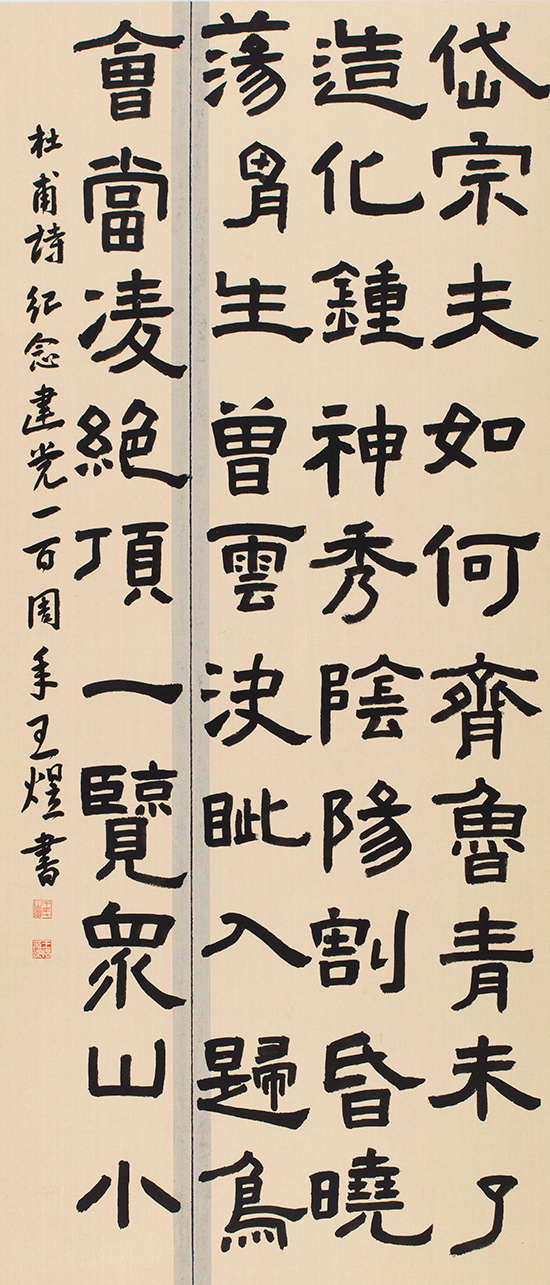 岱宗夫如何齊魯青未了
造化鍾神秀陰陽割昏曉
蕩胷生曾雲決眦入歸鳥
會當凌絕頂一覽眾山小
杜甫詩紀念建党一百周年王煜書